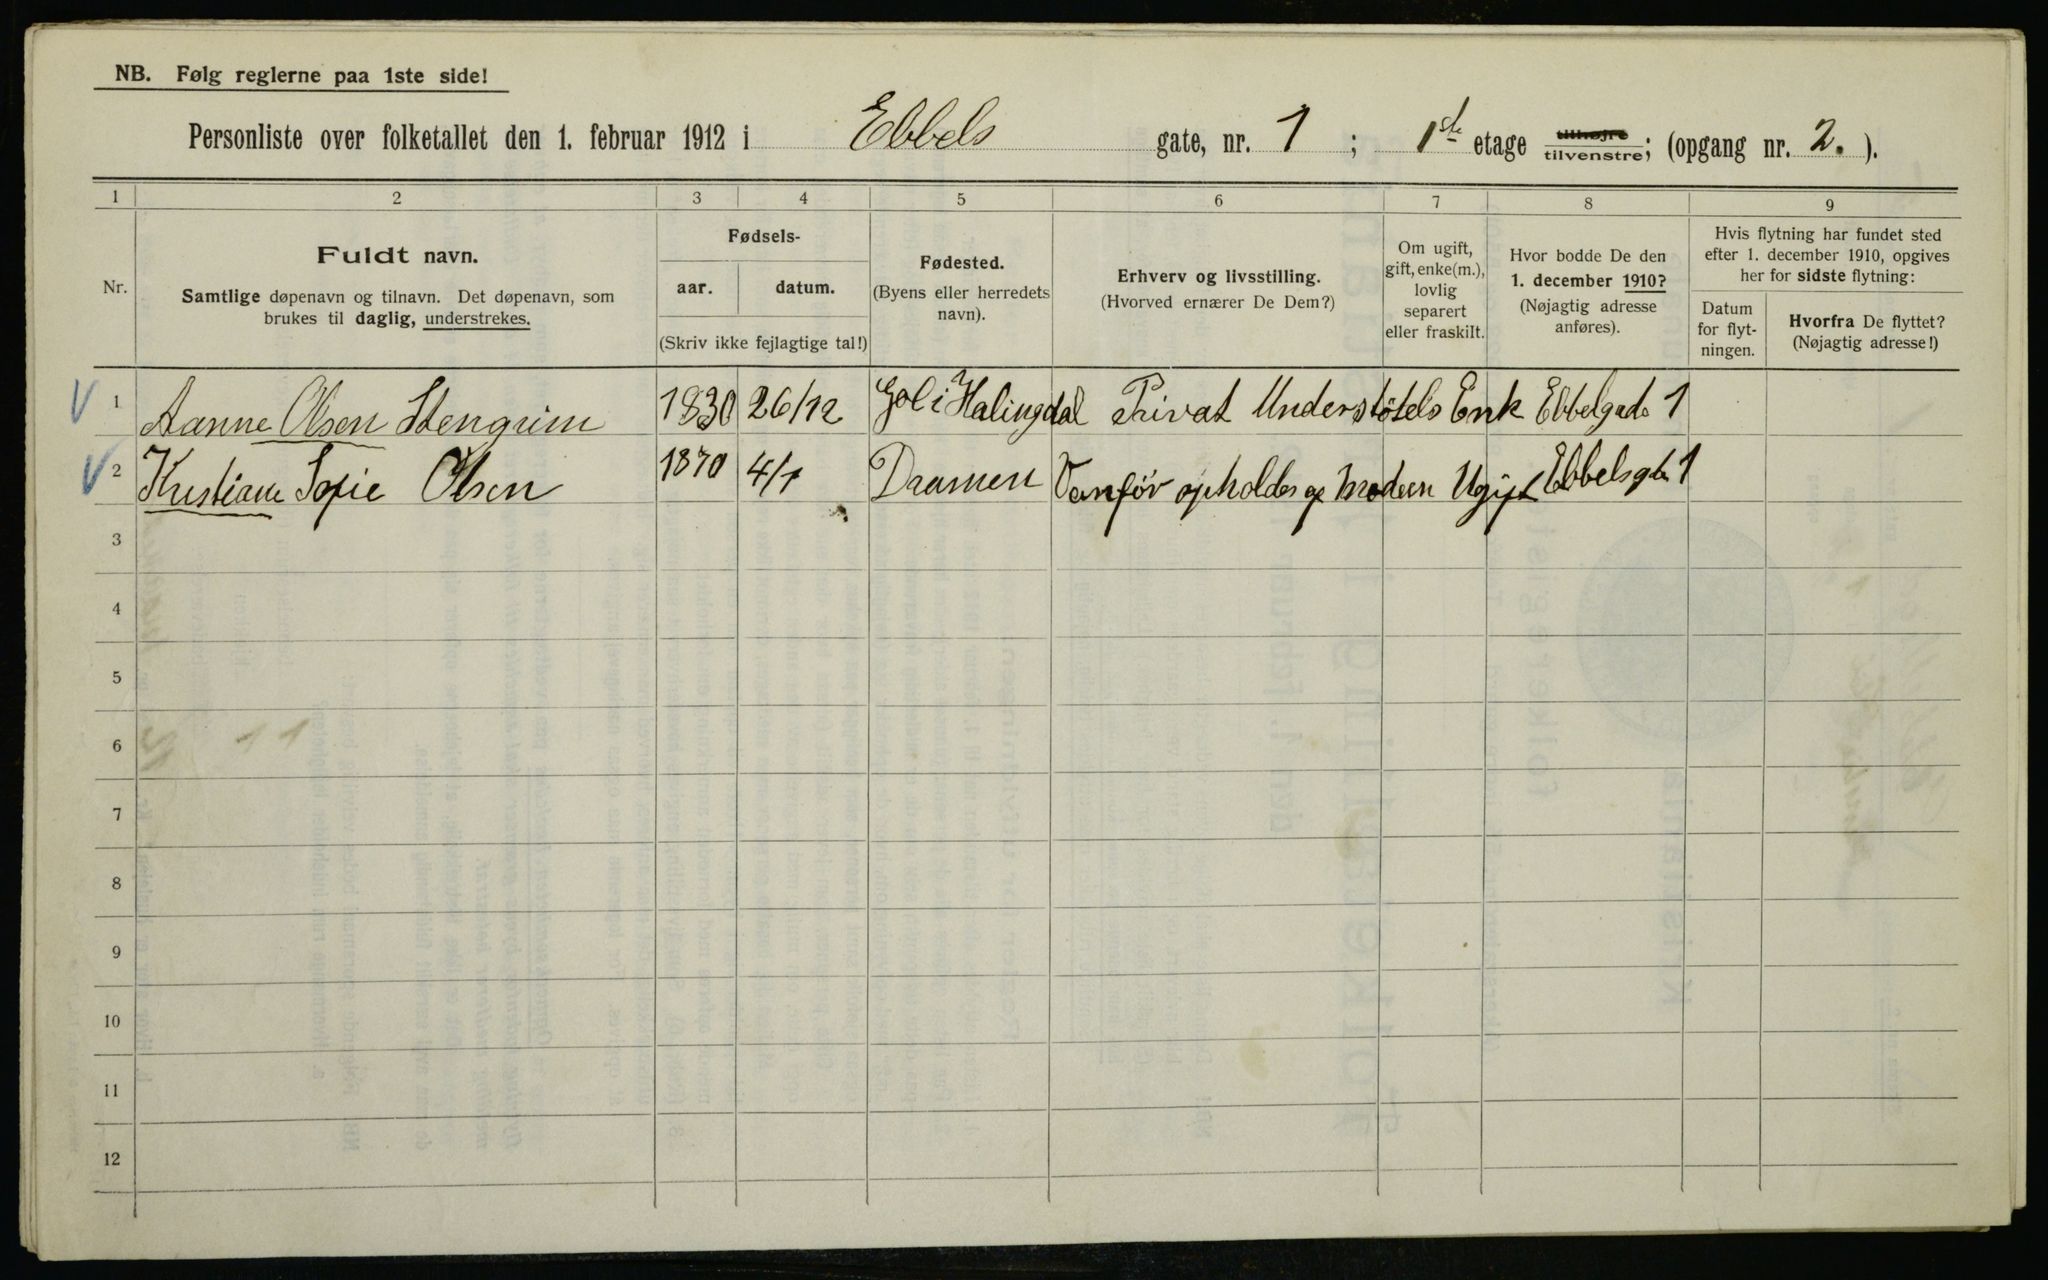 NB. Følg reglerne paa 1ste side!
Personliste over folketallet den 1. februar 1912 i Ebbels gate, nr. 1 ; 1ste etage tilhøjre tilvenstre; (opgang nr. 2. ).
1 2 3 4 5 6 7 8 9
Nr.
Fuldt navn.
Samtlige døpenavn og tilnavn. Det døpenavn, som
brukes til daglig, understrekes.
Fødsels-
aar. datum.
(Skriv ikke fejlagtige tal!)
Fødested.
(Byens eller herredets
navn).
Erhverv og livsstilling.
(Hvorved ernærer De Dem?)
Om ugift,
gift, enke(m.),
lovlig
separert
eller fraskilt.
Hvor bodde De den
1. december 1910?
(Nøjagtig adresse
anføres).
Hvis flytning har fundet sted
efter 1. december 1910, opgives
her for sidste flytning:
Datum
for flyt-
ningen.
Hvorfra De flyttet?
(Nøjagtig adresse!)
1 Aanne Olsen Stengrim 1830 26/12 Gol i Halingdal Privat Understøtels Enk Ebbelgade 1
2 Kristiane Sofie Olsen 1870 4/1 Dramen Vanfør opholdes af Modern Ugift Ebbelsgte 1
3
4
5
6
7
8
9
10
11
12